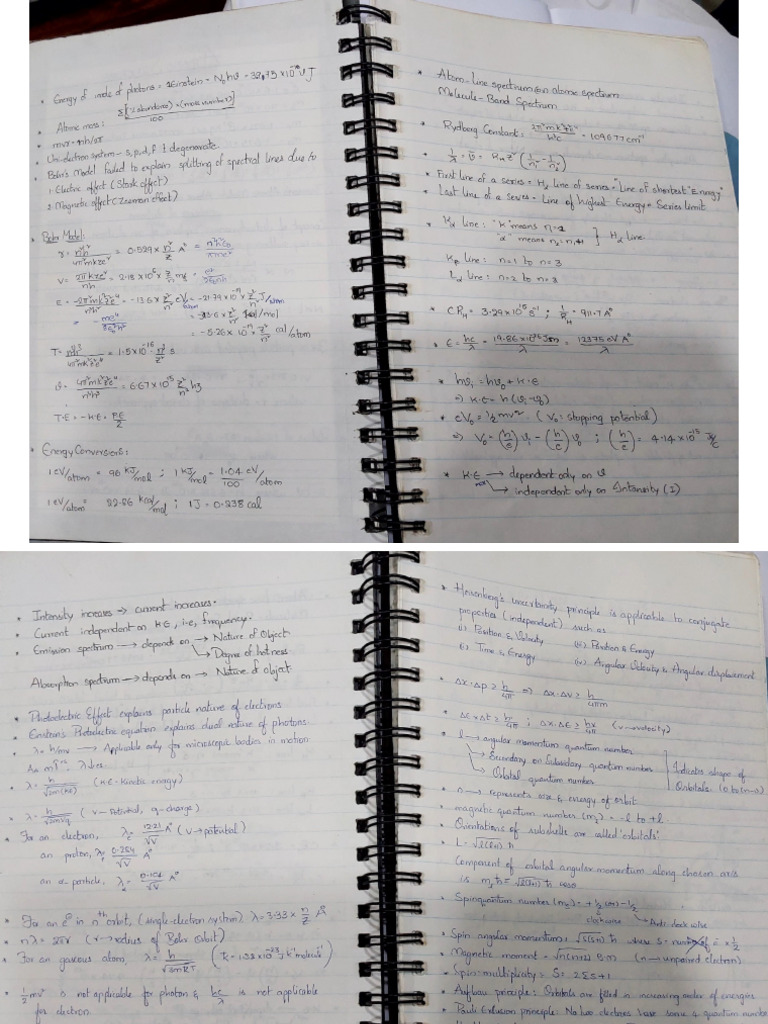 • Energy of 1mole of photons = 1Einstein = N₀hν = 39.975 × 10⁻¹¹ ν J
• Atomic mass: Σ[(% abundance) × (mass number)] / 100
• mvr = nh/2π
• Uni-electron system - s, p, d, f : degenerate
• Bohr's Model failed to explain splitting of spectral lines due to
1. Electric effect (Stark effect)
2. Magnetic effect (Zeeman effect)
• Bohr Model:
r = n²h²/4π²mkze² = 0.529 × n²/z A° = n²h²ε₀/πme²
V = 2πkze²/nh = 2.18 × 10⁶ × z/n m/s = e²/2ε₀nh
E = -2π²mk²z²e⁴/n²h² = -13.6 × z²/n² eV/atom = -21.79 × 10⁻¹⁹ z²/n² J/atom
= -me⁴/8ε₀²h²n²
= -5.26 × 10⁻¹⁹ z²/n² cal/atom
= 1.5 × 10⁻¹⁶ n³/z² s
ν = 4π²mk²z²e⁴/n³h³ = 6.67 × 10¹⁵ z²/n³ hz
T.E = -K.E = P.E/2
• Energy Conversions:
1 eV/atom = 96 KJ/mol ; 1 KJ/mol = 1.04/100 eV/atom
1 eV/atom = 22.86 Kcal/mol ; 1 J = 0.238 cal
• Atom - line spectrum (or) atomic spectrum
Molecule - Band Spectrum
• Rydberg Constant: 2π²mk²e⁴/h³c = 109677 cm⁻¹
• 1/λ = ν̄ = R_H z² (1/n₁² - 1/n₂²)
• First line of a series = Hα line of series = "Line of shortest "Energy"
• Last line of a series = Line of highest Energy = Series limit
• Kα line : "K" means n=1
"α" means n₂ = n₁+1 } Hα line
Kβ line : n=1 to n=3
Lα line : n=2 to n=3
• C R_H = 3.29 × 10¹⁵ s⁻¹ ; 1/R_H = 911.7 A°
• E = hc/λ = 19.86 × 10⁻²⁶ Jm/λ = 12375 eV A°/λ
• hνᵢ = hν₀ + K.E
⇒ K.E = h(νᵢ - ν₀)
• eV₀ = ½mv² (V₀: stopping potential)
⇒ V₀ = (h/e)νᵢ - (h/e)ν₀ ; (h/e) = 4.14 × 10⁻¹⁵ Js/C
• K.E max → dependent only on ν
→ independent only on Intensity (I)
• Intensity increases → current increases.
• Current independent on KE, i.e, frequency.
• Emission spectrum → depends on → Nature of Object
→ Degree of hotness
Absorption spectrum → depends on → Nature of object
• Photoelectric Effect explains particle nature of electrons
• Einstein's Photoelectric equation explains dual nature of photons.
• λ = h/mv → Applicable only for microscopic bodies in motion
As m↑, λ↓es
• λ = h/√2m(KE) (KE - Kinetic energy)
• λ = h/√2mVq (V - Potential, q - charge)
• For an electron, λe = 12.27/√V A° (V → potential)
an proton, λp = 0.284/√V A°
an α-particle, λα = 0.101/√V A°
• For an e⁻ in nth orbit, (single-electron system) λ = 3.33 × n/z A°
• nλ = 2πr (r → radius of Bohr Orbit)
• For an gaseous atom, λ = h/√3mKT (K = 1.38 × 10⁻²³ J K⁻¹ molecule⁻¹)
• ½mv² is not applicable for photon & hc/λ is not applicable
for electron.
• Heisenberg's uncertainty principle is applicable to conjugate
properties (independent) such as
(i) Position & Velocity
(iii) Position & Energy
(ii) Time & Energy
(iv) Angular Velocity & Angular displacement
• Δx·Δp ≥ h/4π ⇒ Δx·Δv ≥ h/4πm
• ΔE × Δt ≥ h/4π ; Δx·ΔE ≥ hv/4π (v → velocity)
• l → angular momentum quantum number
→ Secondary or Subsidiary quantum number
→ Orbital quantum number
Indicates shape of
Orbitals (0 to (n-1))
• n → represents size & energy of orbit
• magnetic quantum number (m_l) = -l to +l
• Orientations of subshells are called 'orbitals'.
• L = √l(l+1) ħ
Component of orbital angular momentum along chosen axis
is m_l ħ = √l(l+1) ħ cosθ
• Spin quantum number (m_s) = +½ (or) -½
clockwise → Anti-clockwise
• Spin angular momentum: √S(S+1) ħ where S = number of e⁻ × ½
• Magnetic moment = √n(n+2) B.M (n → unpaired electron)
• Spin multiplicity = S = 2ΣS+1
• Aufbau principle: Orbitals are filled in increasing order of energies
• Pauli Exclusion principle: No two electrons have same 4 quantum